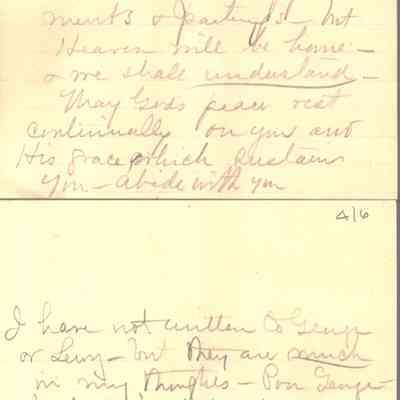 ments & partings - but
Heaven will be home -
& we shall understand -
May Gods peace rest
continually on you and
His grace which sustains
you - abide with you
4/6
I have not written to George
or Levy - but they are so much
in my thoughts - Poor George -